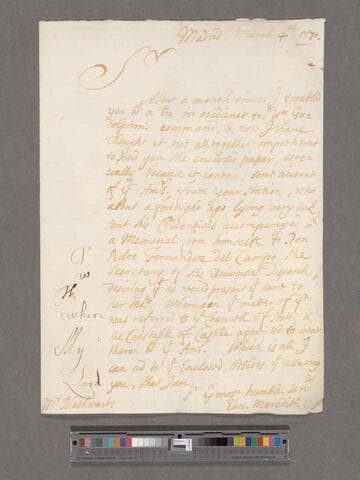 Madrid March 4th 1670.
Sr
About a month since I troubled
you wth a by Sr Wm Go-
dolphins command, & now I have
thought it not alltogether impertinent
to send you the enclosed paper, espe-
cially because it contains some account
of ye Amb. from your Station, who
about a fortnight ago lying very sick
sent his Credentials accompanyed wth
a Memorial from himselfe to Don
Pedro Fernandez del Campo, the
Secretary of the Universal Dispatch,
desiring if he would present ye same to
her Maty. Whereupon ye matter of ym
was referred to ye Councill of State &
the Constable of Castile appointed to
wth ye Amb. Which is all I
can ad to ye Enclosed, besides ye assuring
you, that I am,
Sr yr most humble Servt
Em. Meredith.
P
w
Th
when
My
Lord